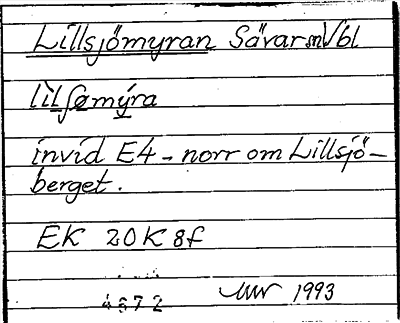 Lillsjömyran Sävar sn Vbl
lilʃømýra
invid E4 - norr om Lillsjö-
berget.
EK 20K 8f
4672 1993